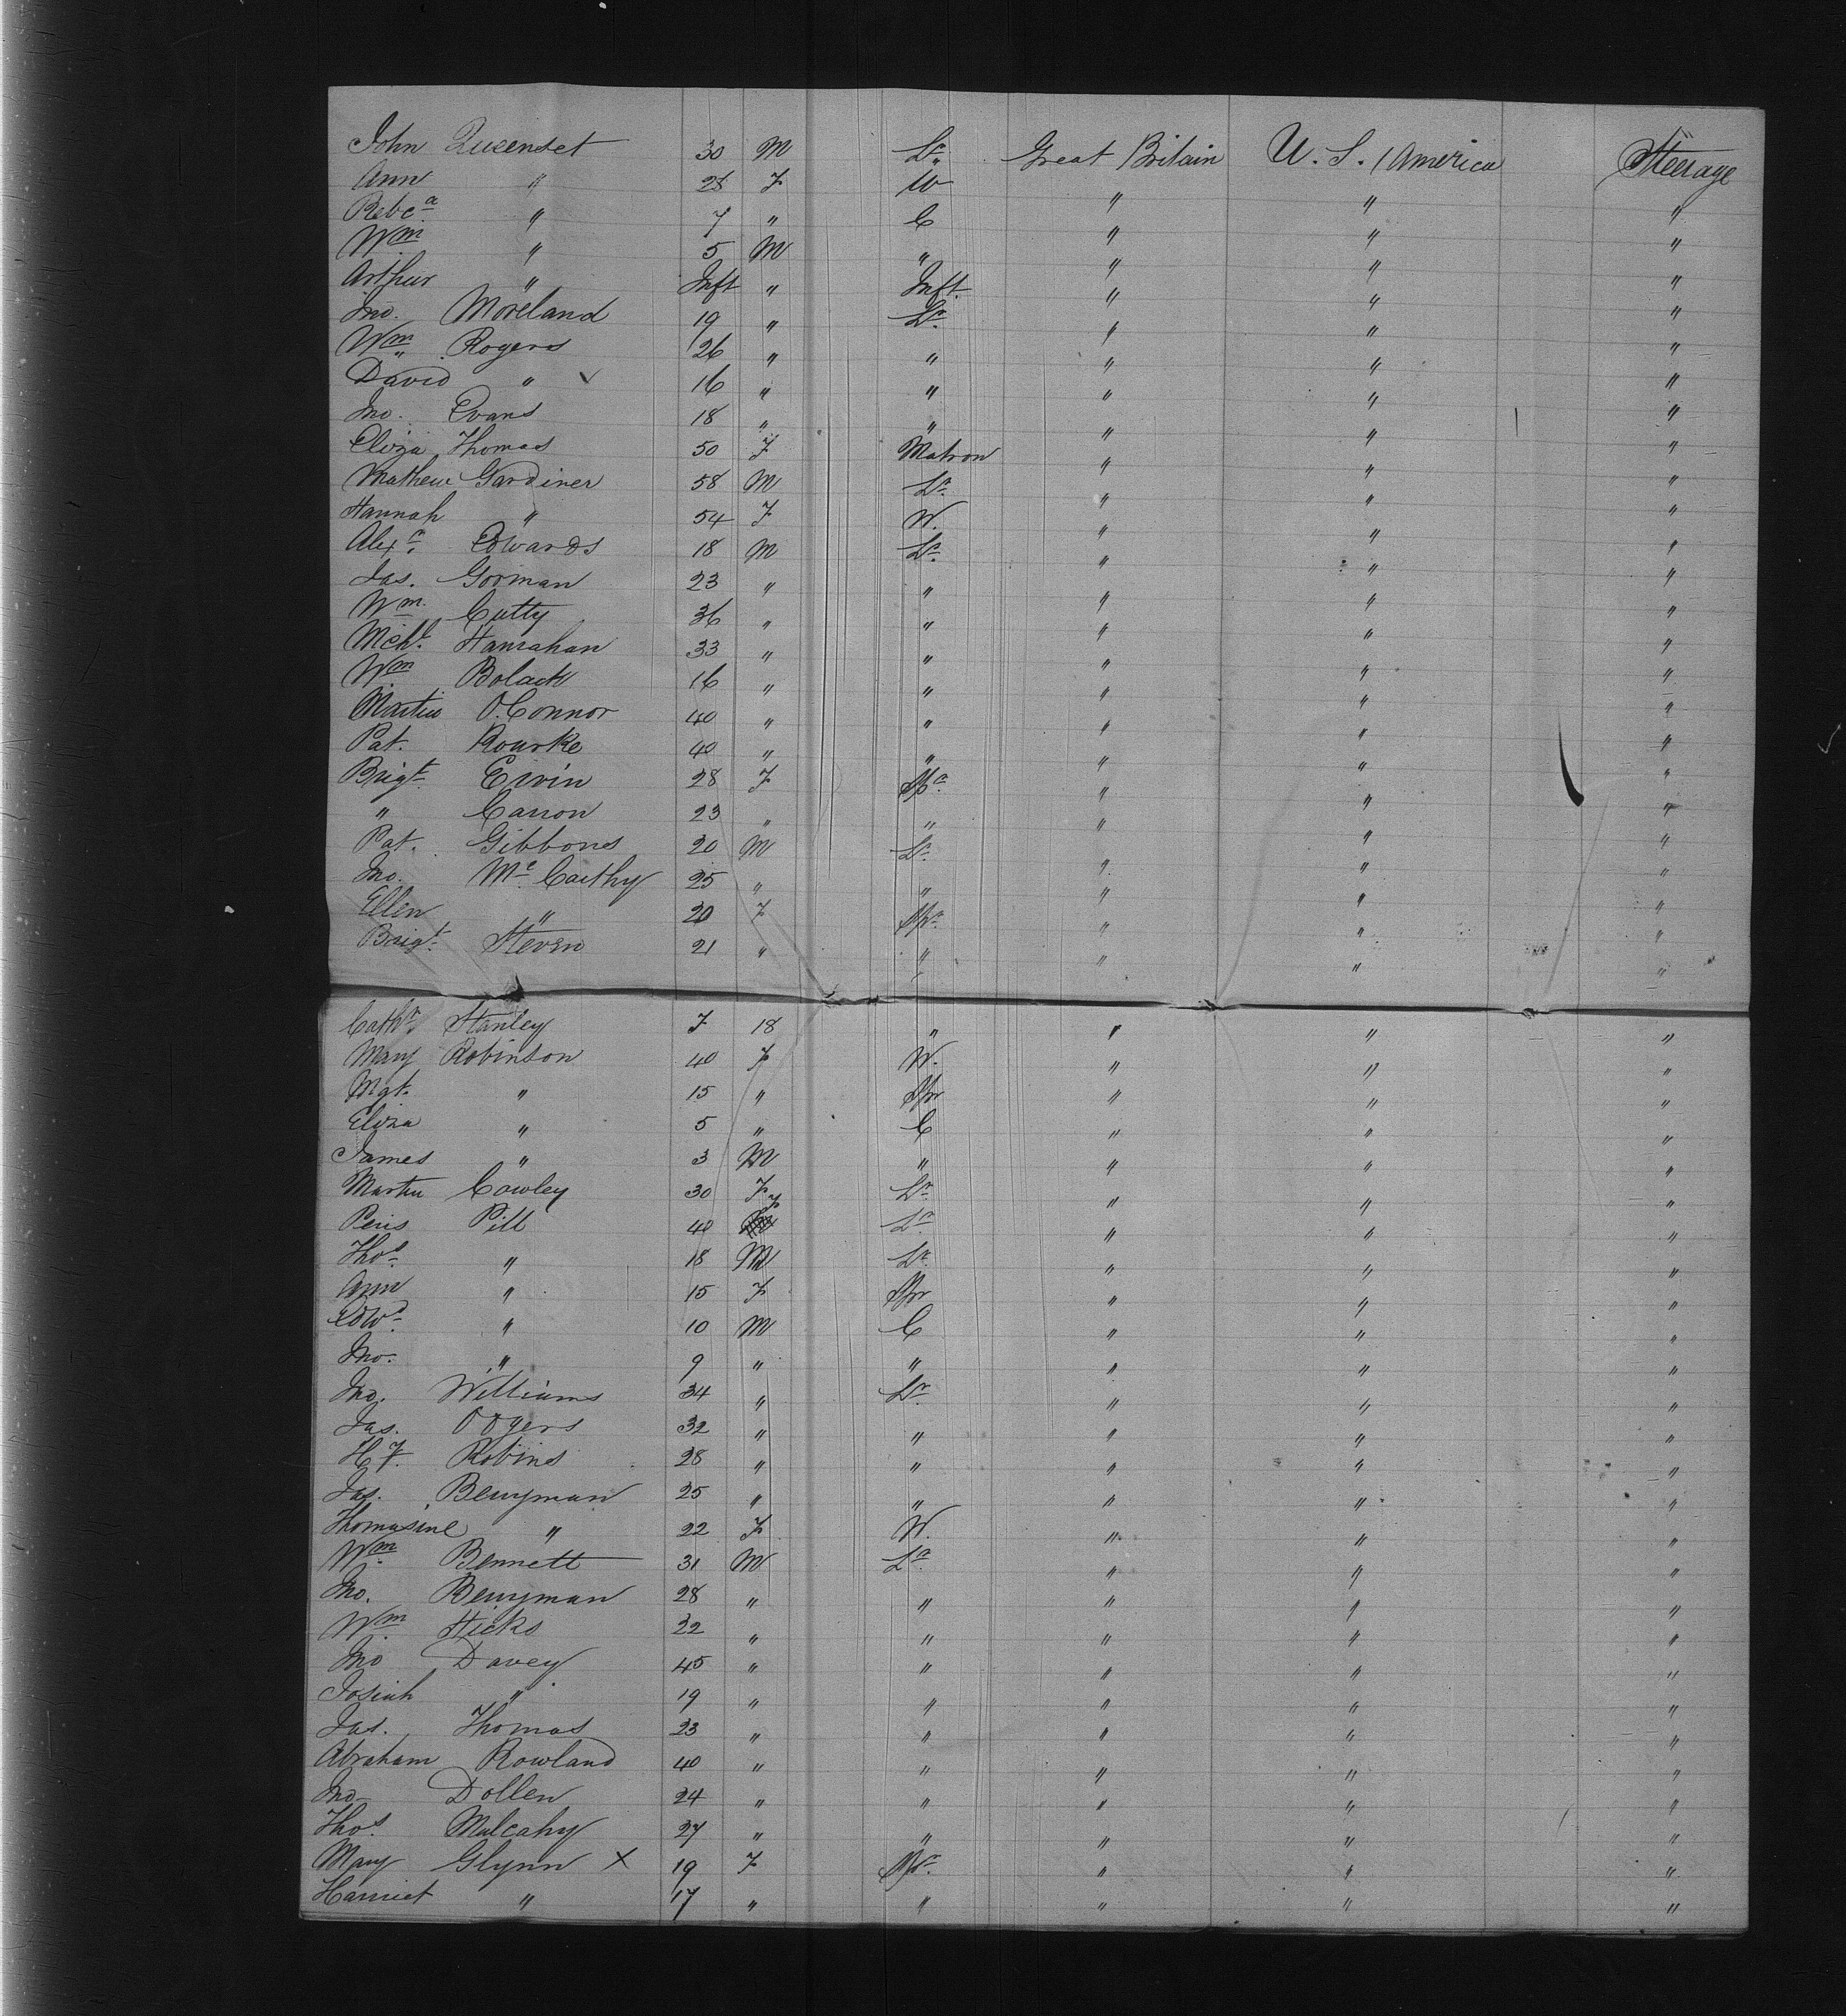 John Queenset 30 M Lr. Great Britain U. S. America Steerage
Ann " 28 F W " " "
Rebca " 7 " C " " "
Wm " 5 M " " " "
Arthur " Inft " Inft. " " "
Jno. Moreland 19 " Lr. " " "
Wm Rogers 26 " " " " "
David " 16 " " " " "
Jno. Evans 18 " " " " "
Eliza Thomas 50 F Matron " " "
Mathew Gardiner 58 M Lr. " " "
Hannah " 54 F W. " " "
Alexr. Edwards 18 M Lr. " " "
Jas. Gorman 23 " " " " "
Wm. Cutty 36 " " " " "
Michl. Hanrahan 33 " " " " "
Wm Bolack 16 " " " " "
Martin O.Connor 40 " " " " "
Pat. Rourke 40 " " " " "
Brigt. Ervin 28 F Spr. " " "
" Canon 23 " " " " "
Pat. Gibbons 20 M Lr. " " "
Jno. Mc. Carthy 25 " " " " "
Ellen " 20 F Spr. " " "
Brigt. Steven 21 " " " " "
Cathr. Stanley F 18 " " " "
Mary Robinson 40 F W. " " "
Mgt. " 15 " Spr " " "
Eliza " 5 " C " " "
James " 3 M " " " "
Martin Cowley 30 F Lr. " " "
Peris Pill 40 F Lr. " " "
Thos. " 18 M Lr. " " "
Ann " 15 F Spr " " "
Edwd. " 10 M C " " "
Jno. " 9 " " " " "
Jno. Williams 34 " Lr. " " "
Jas. Odgers 32 " " " " "
Hy. Robins 28 " " " " "
Jas. Berryman 25 " " " " "
Thomasine " 22 F W. " " "
Wm. Bennett 31 M Lr. " " "
Jno. Berryman 28 " " " " "
Wm. Hicks 22 " " " " "
Jno Davey 45 " " " " "
Josiah " 19 " " " " "
Jas. Thomas 23 " " " " "
Abraham Rowland 40 " " " " "
Jno. Dollen 24 " " " " "
Thos. Mulcahy 27 " " " " "
Mary Glynn X 19 F Spr. " " "
Harriet " 17 " " " " "